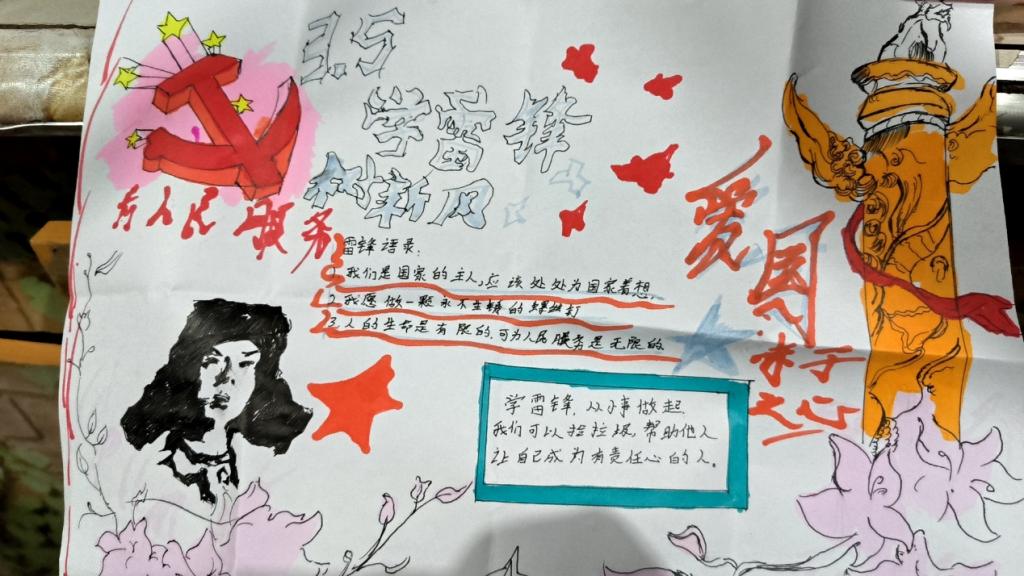 3.5
学雷锋
树新风
为人民服务
雷锋语录:
1.我们是国家的主人,应该处处为国家着想.
2.我愿做一颗永不生锈的螺丝钉
3.人的生命是有限的,可为人民服务是无限的.
学雷锋,从小事做起
我们可以捡垃圾,帮助他人
让自己成为有责任心的人。
爱国
之心